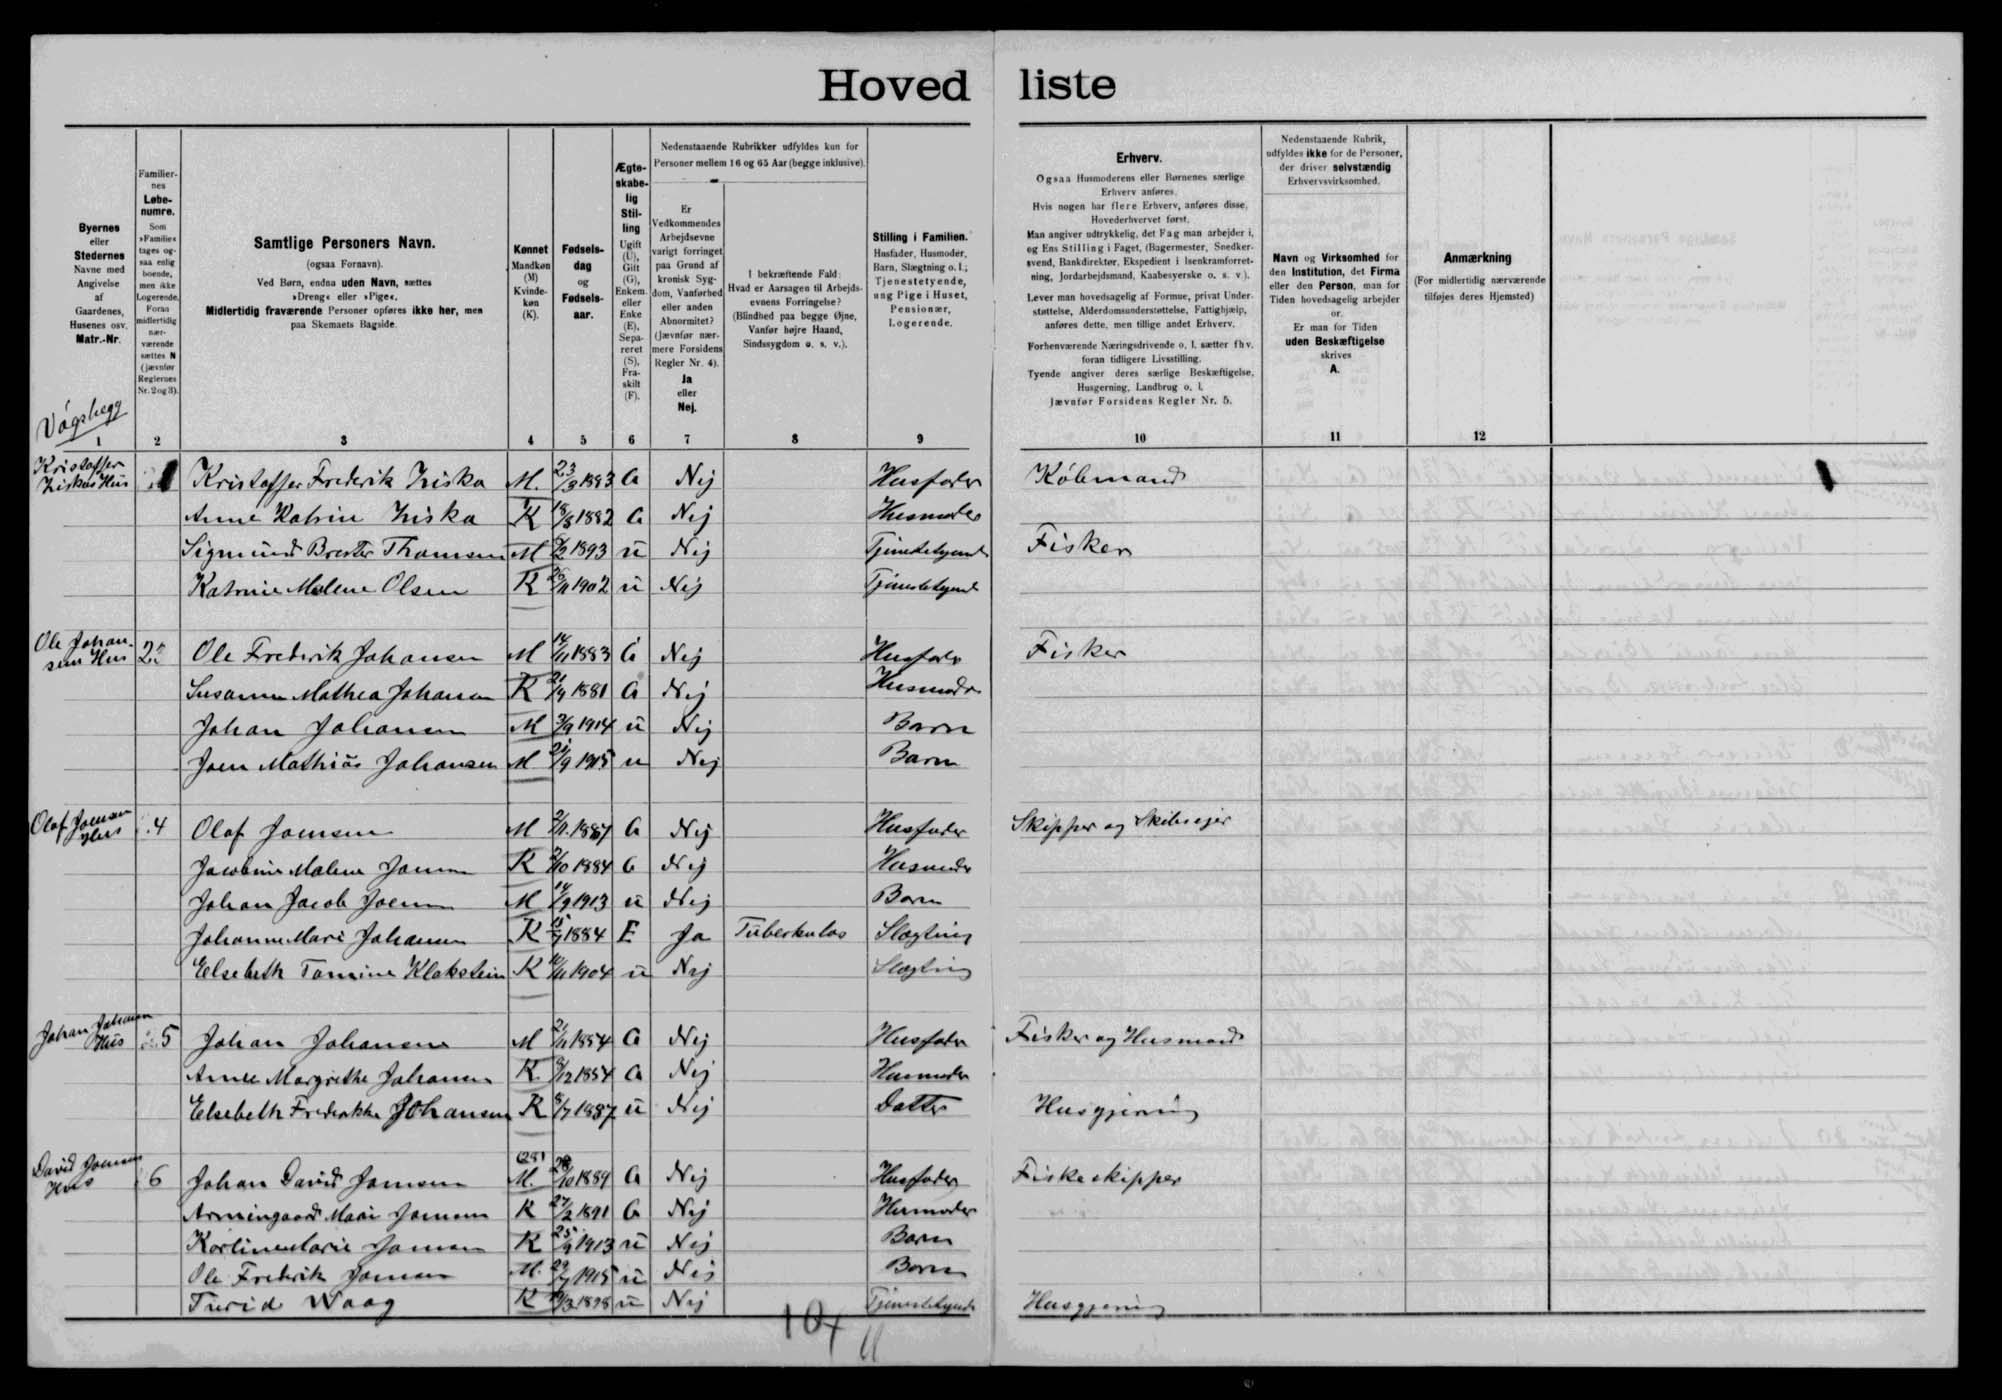 Hoved liste
Byernes
eller
Stedernes
Navne med
Angivelse
af
Gaardenes,
Husenes osv.
Matr.-Nr.
Familier-
nes
Løbe-
numre.
Som
»Familie«
tages og-
saa enlig
boende,
men ikke
Logerende,
Foran
midlertidig
nær-
værende
sættes N
(jævnfør
Reglernes
Nr. 2 og 3).
Samtlige Personers Navn.
(ogsaa Fornavn).
Ved Børn, endnu uden Navn, sættes
»Dreng« eller »Pige«.
Midlertidig fraværende Personer opføres ikke her, men
paa Skemaets Bagside.
Kønnet
Mandkøn
(M)
Kvinde-
køn
(K).
Fødsels-
dag
og
Fødsels-
aar.
Ægte-
skabe-
lig
Stil-
ling
Ugift
(U),
Gift
(G),
Enkem.
eller
Enke
(E),
Sepa-
reret
(S),
Fra-
skilt
(F).
Nedenstaaende Rubrikker udfyldes kun for
Personer mellem 16 og 65 Aar (begge inklusive).
Er
Vedkommendes
Arbejdsevne
varigt forringet
paa Grund af
kronisk Syg-
dom, Vanførhed
eller anden
Abnormitet?
(Jævnfør nær-
mere Forsidens
Regler Nr. 4).
Ja
eller
Nej.
I bekræftende Fald:
Hvad er Aarsagen til Arbejds-
evnens Forringelse?
(Blindhed paa begge Øjne,
Vanfør højre Haand,
Sindssygdom o. s. v.).
Stilling i Familien.
Husfader, Husmoder,
Barn, Slægtning o. l.;
Tjenestetyende,
ung Pige i Huset,
Pensionær,
Logerende.
Erhverv.
Ogsaa Husmoderens eller Børnenes særlige
Erhverv anføres.
Hvis nogen har flere Erhverv, anføres disse,
Hovederhvervet først.
Man angiver udtrykkelig, det Fag man arbejder i,
og Ens Stilling i Faget, (Bagermester, Snedker-
svend, Bankdirektør, Ekspedient i Isenkramforret-
ning, Jordarbejdsmand, Kaabesyerske o. s. v.).
Lever man hovedsagelig af Formue, privat Under-
støttelse, Alderdomsunderstøttelse, Fattighjælp,
anføres dette, men tillige andet Erhverv.
Forhenværende Næringsdrivende o. l. sætter fhv.
foran tidligere Livsstilling.
Tyende angiver deres særlige Beskæftigelse,
Husgerning, Landbrug o. l.
Jævnfør Forsidens Regler Nr. 5.
Nedenstaaende Rubrik,
udfyldes ikke for de Personer,
der driver selvstændig
Erhvervsvirksomhed.
Navn og Virksomhed for
den Institution, det Firma
eller den Person, man for
Tiden hovedsagelig arbejder
for.
Er man for Tiden
uden Beskæftigelse
skrives
A.
Anmærkning
(For midlertidig nærværende
tilføjes deres Hjemsted)
Vágsbegg
1 2 3 4 5 6 7 8 9 10 11 12
Kristoffer
Ziskas Hus
Kristoffer Frederik Ziska M. 23/3 1883 G Nej Husfader Købmand
Anne Katrin Ziska K 18/8 1882 G Nej Husmoder
Sigmund Brester Thomsen M /2 1893 u Nej Tjenestetyende Fisker
Katrine Malene Olsen K /11 1902 u Nej Tjenestetyende
Ole Johan-
sens Hus
2 Ole Frederik Johansen M 14/11 1883 G Nej Husfader Fisker
Susanna Mathea Johansen K 21/9 1881 G Nej Husmoder
Johan Johansen M 3/9 1914 u Nej Barn
Joen Mathias Johansen M 21/9 1915 u Nej Barn
Olaf Joensen
Hus
4 Olaf Joensen M 2/11 1887 G Nej Husfader Skipper og Skibsejer
Jacobine Malene Joensen K 2/10 1884 G Nej Husmoder
Johan Jacob Joensen M 14/9 1913 u Nej Barn
Johanne Marie Johansen K 15/7 1884 E Ja Tuberkulos Slægtning
Elsebeth Tomine Klakstein K /11 1904 u Nej Slægtning
Johan Johansen
Hus
5 Johan Johansen M 21/11 1854 G Nej Husfader Fisker og Husmand
Anne Margrethe Johansen K. 8/12 1854 G Nej Husmoder
Elsebeth Frederikke Johansen K 8/7 1887 u Nej Datter Husgjerning
David Joensens
Hus
(28)
6 Johan David Joensen M. 28/10 1884 G Nej Husfader Fiskeskipper
Armingaard Marie Joensen K 27/2 1891 G Nej Husmoder
Karlina Marie Joensen K 25/9 1913 u Nej Barn
Ole Frederik Joensen M. 29/7 1915 u Nej Barn
Turid Waag K /3 1898 u Nej Tjenestetyende Husgjerning
104
11